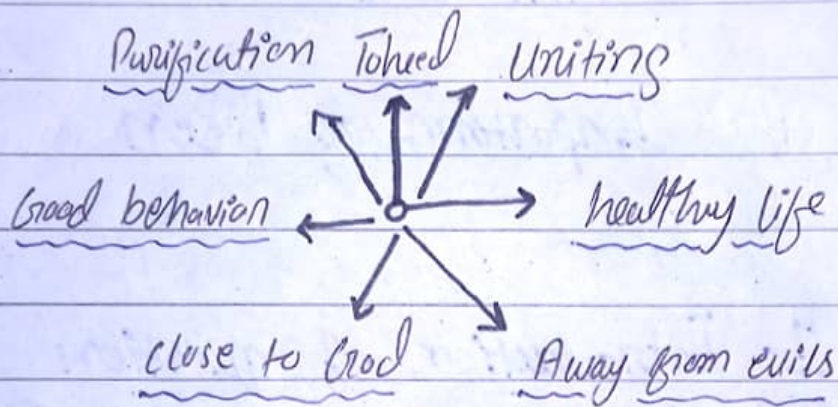 Purification Toheed Uniting
Good behavior healthy life
close to God Away from evils